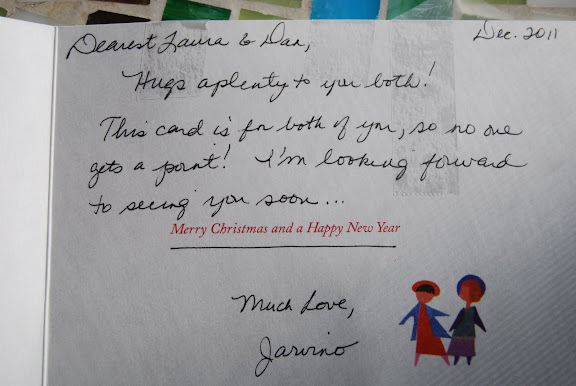 Dec. 2011
Dearest Laura & Dan,
Hugs aplenty to you both!
This card is for both of you, so no one
gets a point! I'm looking forward
to seeing you soon...
Merry Christmas and a Happy New Year
Much Love,
Jarvino